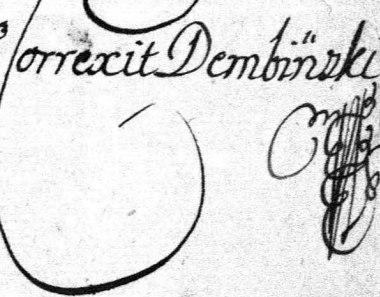 Correxit Dembińzki